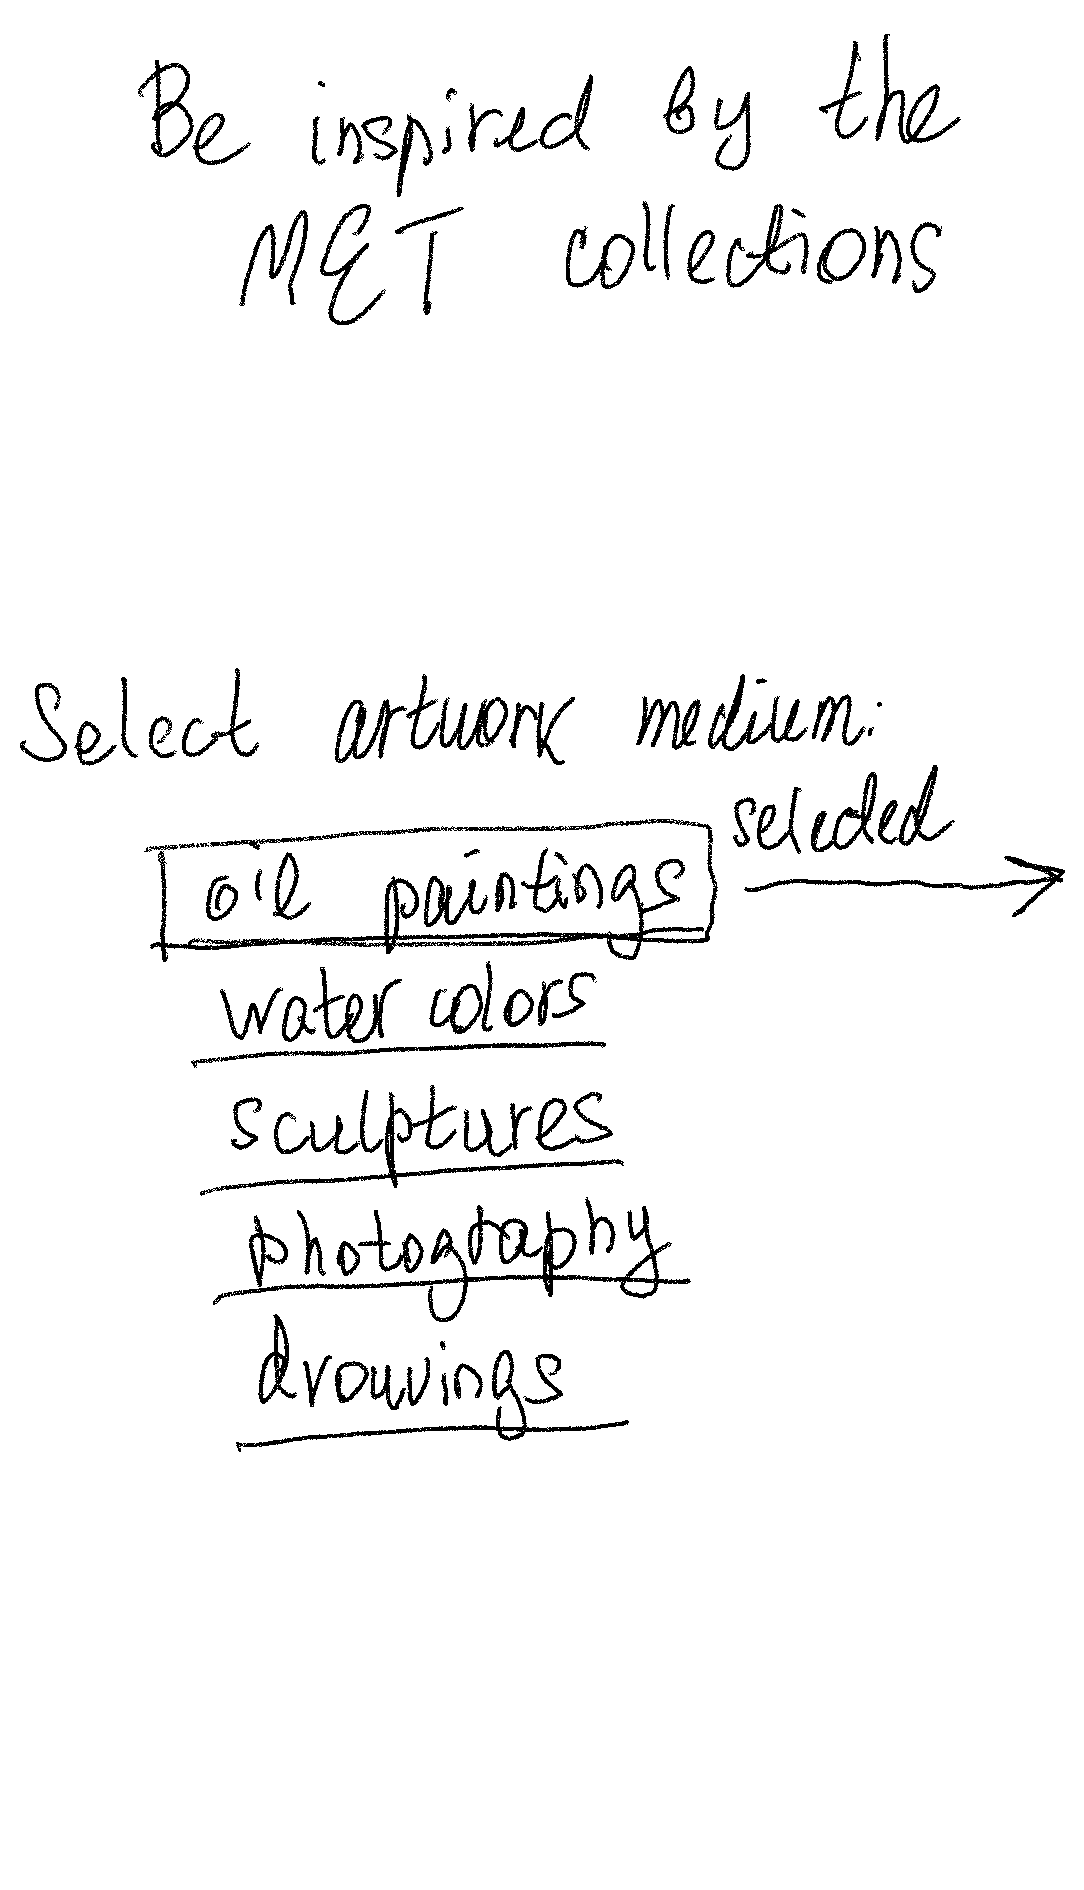 Be inspired by the
MET collections
Select artwork medium:
selected
oil paintings
water colors
sculptures
photography
drawings